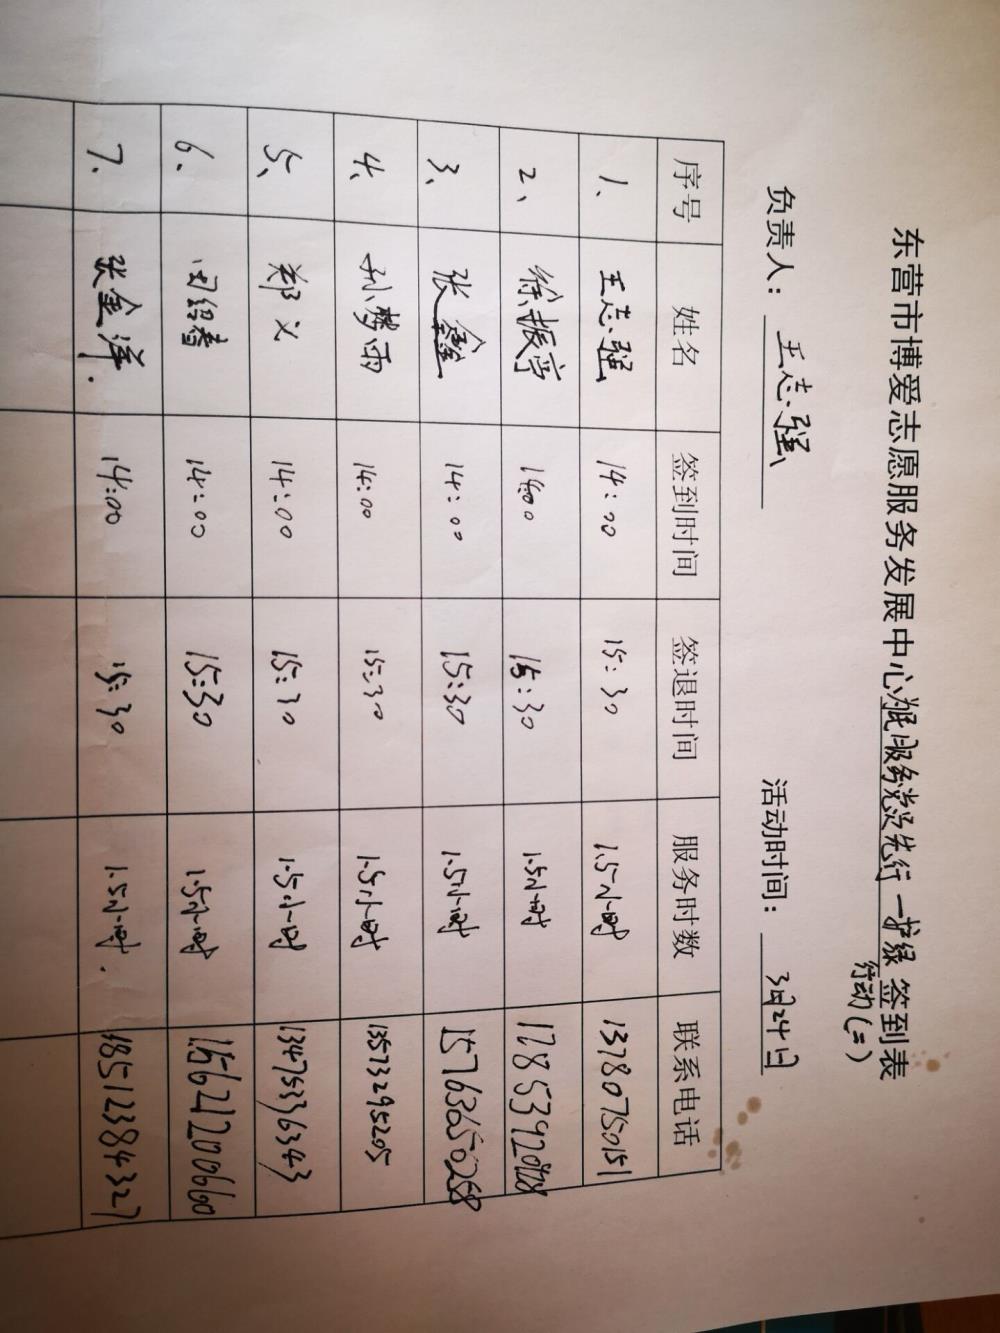 东营市博爱志愿服务发展中心为民服务党员先行—护绿签到表
行动(二)
负责人：王志强 活动时间：3月24日
序号 姓名 签到时间 签退时间 服务时数 联系电话
1、 王志强 14:00 15:30 1.5小时 13780750151
2、 徐振宁 1400 15:30 1.5小时
3、 张鑫 14:00 15:30 1.5小时 15763650258
4、 孙梦雨 14:00 15:30 1.5小时 13573295205
5、 郑义 14:00 15:30 1.5小时 13475336343
6、 田绍春 14:00 15:30 1.5小时 15642120660
7、 张金洋. 14:00 15:30 1.5小时. 18512384327